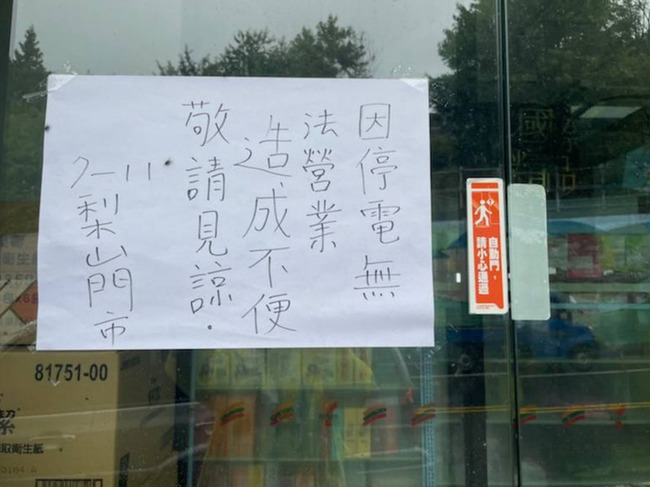 因停電無
法營業
造成不便
敬請見諒.
7-11
梨山門市
自動門,
請小心通過
81751-00
取衛生紙